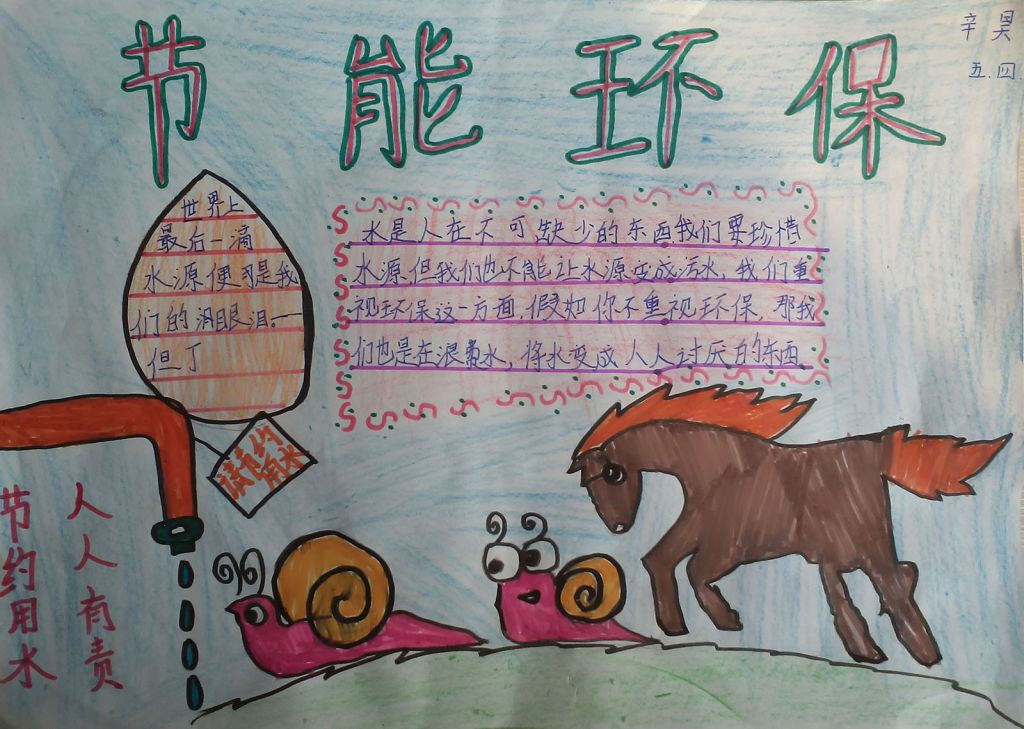 节能环保
辛昊
五.四.
世界上
最后一滴
水源便可是我
们的泪眼泪。一
但丁
水是人在不可缺少的东西我们要珍惜
水源.但我们也不能让水源变成污水,我们重
视环保这一方面,假如你不重视环保,那我
们也是在浪费水,将水变成人人讨厌的东西.
请节约
用水
人人有责
节约用水